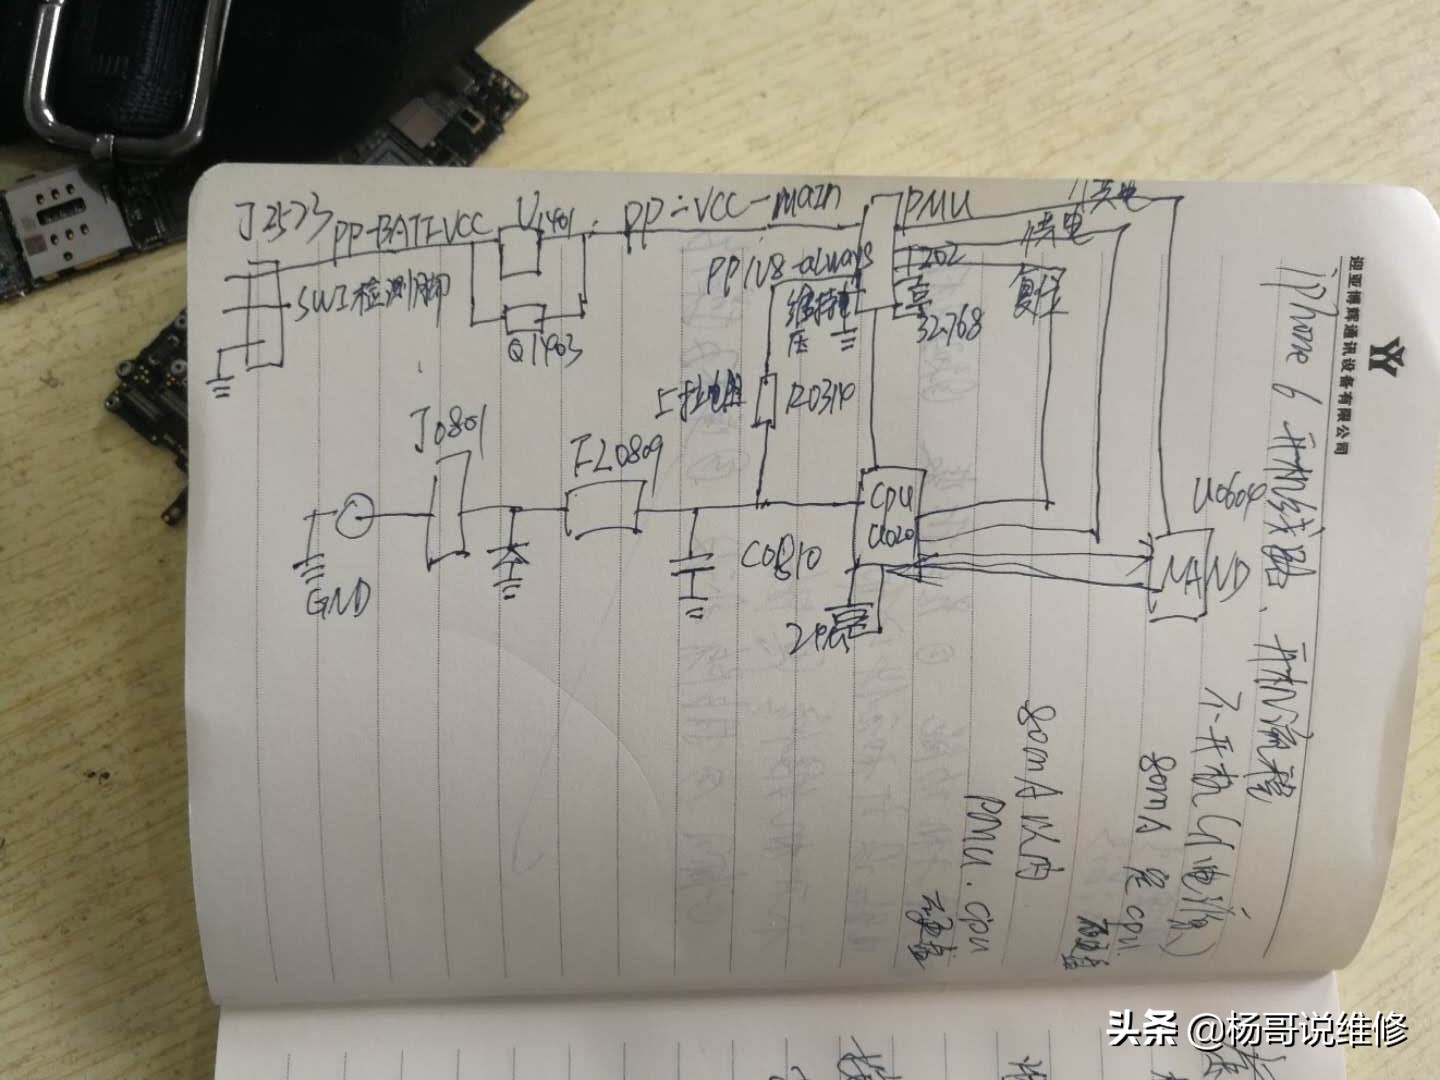 迎亚博辉通讯设备有限公司
iphone 6 开机线路、开机流程
不开机(电流)
80mA 是cpu
80mA以内
PMU.cpu
J2523
PP-BATT-VCC
U1401
PP-VCC-main
PMU
供电
供电
SWI检测脚
Q1403
PP1V8-always
维持电压
1202
32.768
复位
上拉电阻
R0310
J0801
FL0809
CPU
U0604
NAND
GND
24M
头条 @杨哥说维修